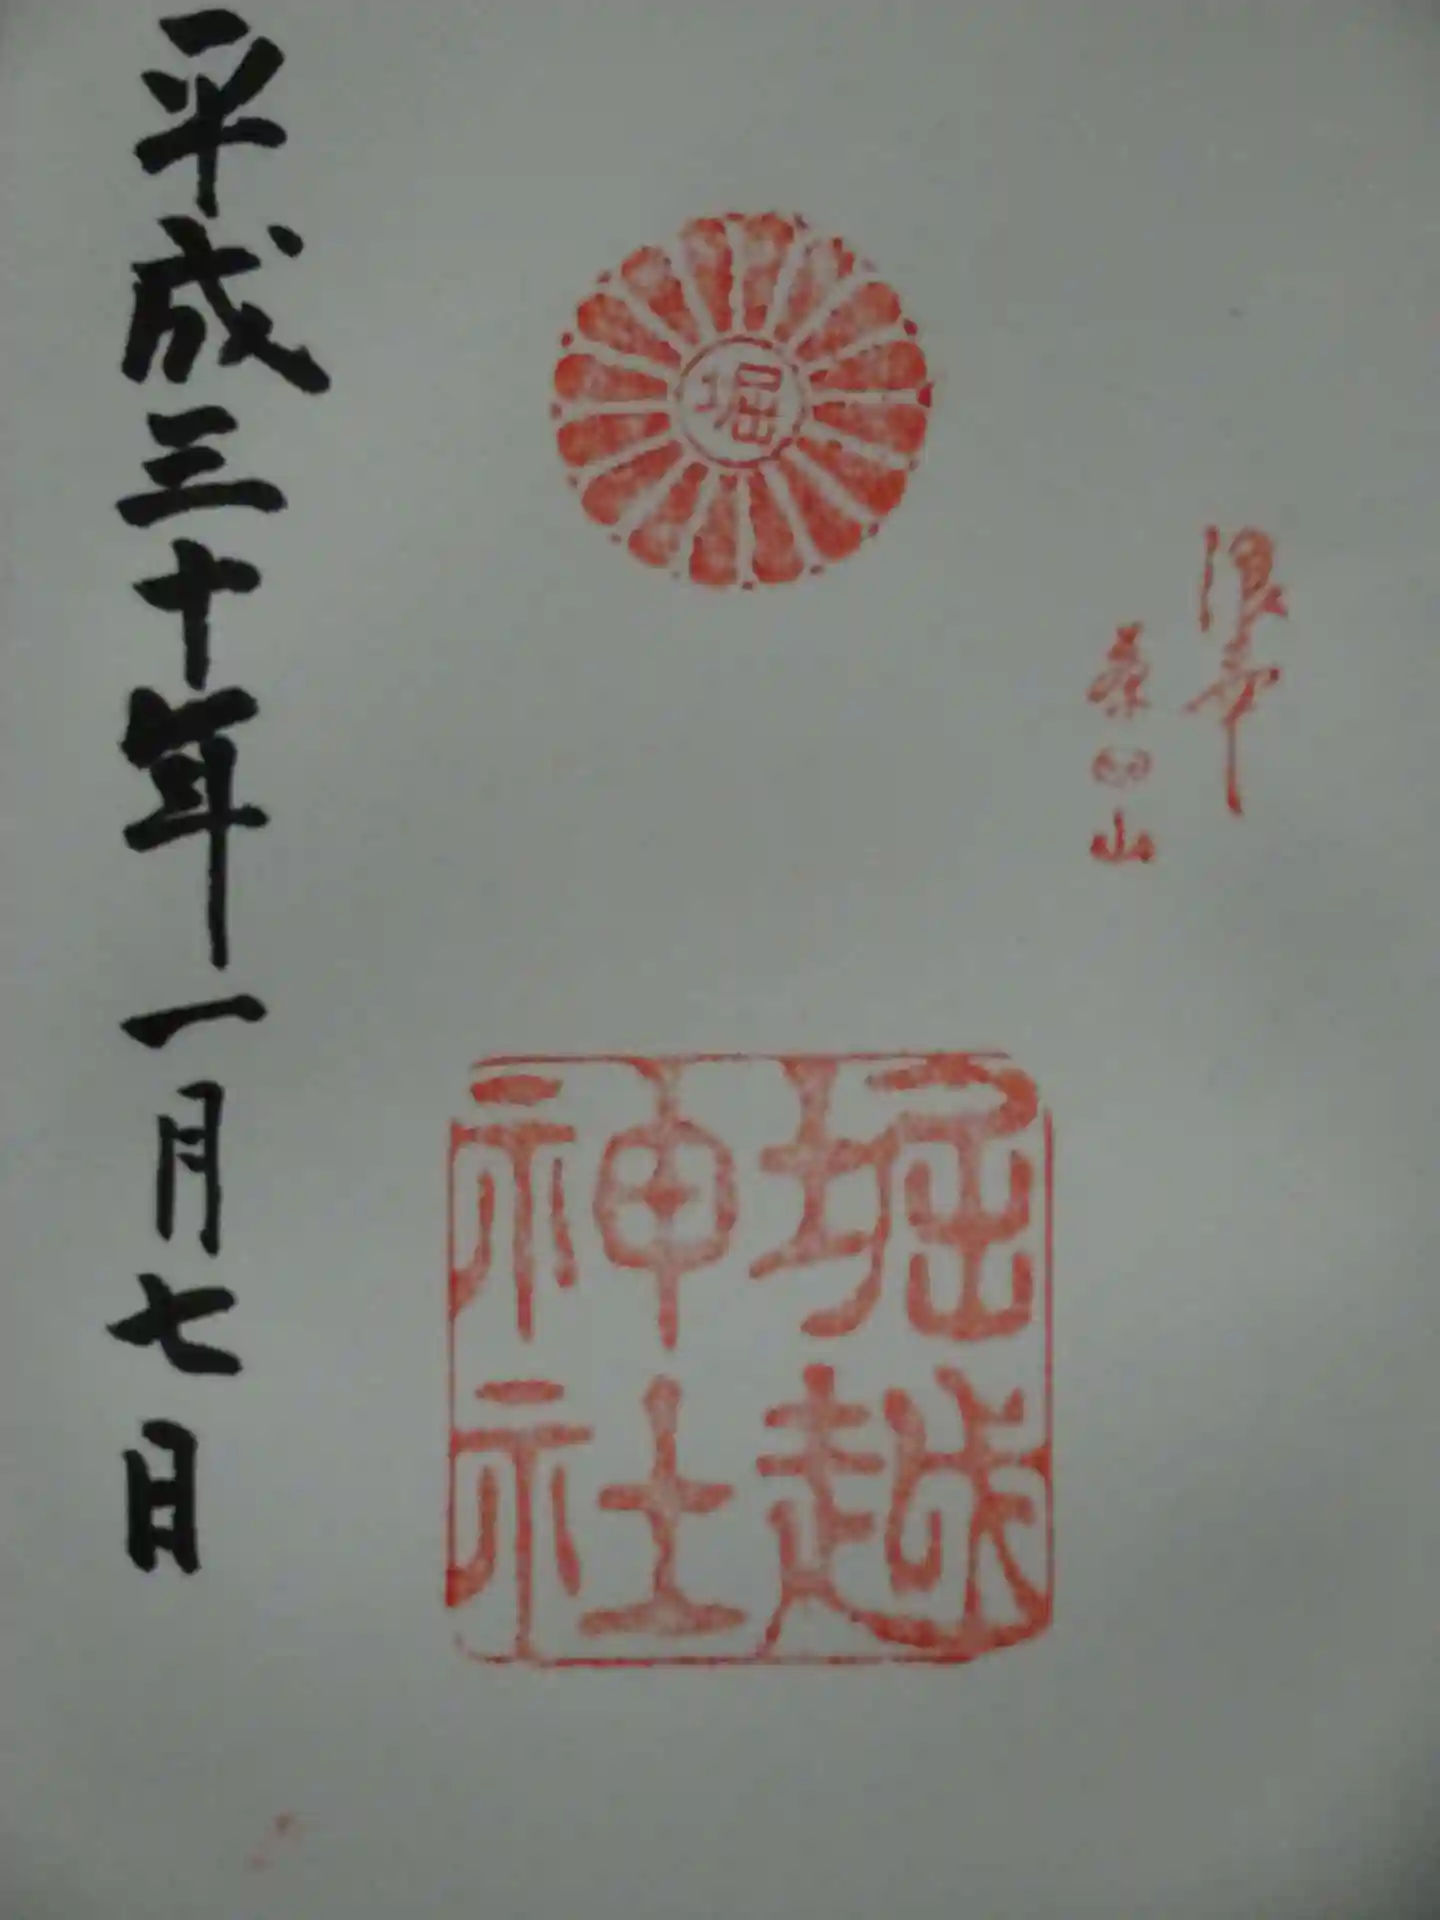 浪華
茶臼山
堀
堀越
神社
平成三十年一月七日